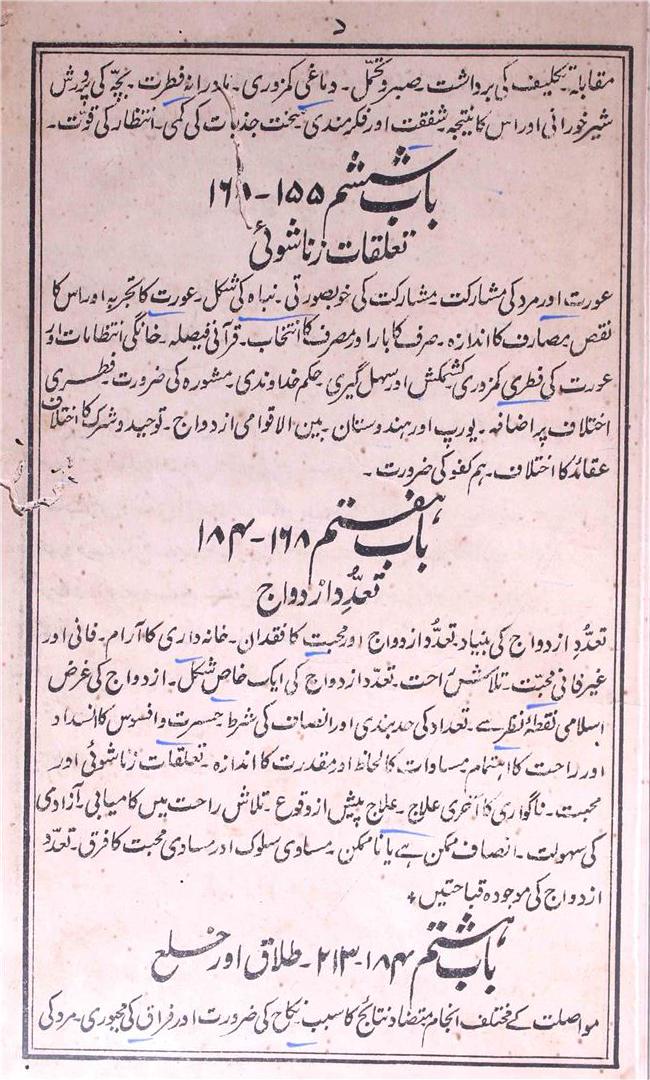 د
مقابلہ۔ تکلیف کی برداشت۔ صبر و تحمّل۔ دماغی کمزوری۔ مادرانہ فطرت۔ بچّہ کی پرورش
شیر خورانی اور اس کا نتیجہ۔ شفقت اور فکر مندی سخت جذبات کی کمی۔ انتظار کی قوّت۔
باب ششم ۱۵۵-
تعلقات زناشوئی
عورت اور مرد کی مشارکت۔ مشارکت کی خوبصورتی۔ نباہ کی شکل۔ عورت کا تجربہ اور اس کا
نقص مصارف کا اندازہ۔ صرف کا بار اور مصرف کا انتخاب۔ قرآنی فیصلہ۔ خانگی انتظامات اور
عورت کی فطری کمزوری کشمکش اور سہل گیری۔ حکم خداوندی۔ مشورہ کی ضرورت۔ فطری
اختلاف پر اضافہ۔ یورپ اور ہندوستان۔ بین الاقوامی ازدواج۔ توحید و شرک کا اختلاف
عقائد کا اختلاف۔ ہم کفو کی ضرورت۔
باب ہفتم ۱۶۸-۱۸۴
تعدّدِ ازدواج
تعدّد ازدواج کی بنیاد۔ تعدّد ازدواج اور محبت کا فقدان۔ خانہ داری کا آرام۔ فانی اور
غیر فانی محبّت۔ تلاش راحت۔ تعدّد ازدواج کی ایک خاص شکل۔ ازدواج کی غرض
اسلامی نقطۂ نظر سے۔ تعداد کی حد بندی اور انصاف کی شرط۔ حسرت و افسوس کا انسداد
اور راحت کا اہتمام مساوات کا لحاظ اور مقدرت کا اندازہ۔ تعلقات زناشوئی اور
محبت۔ ناگواری کا آخری علاج۔ علاج پیش از وقوع۔ تلاش راحت میں کامیابی۔ آزادی
کی سہولت۔ انصاف ممکن ہے یا ناممکن۔ مساوی سلوک اور مساوی محبت کا فرق۔ تعدّد
ازدواج کی موجودہ قباحتیں ٭
باب ہشتم ۱۸۴-۲۱۳۔ طلاق اور خلع
مواصلت کے مختلف انجام متضاد نتائج کا سبب نکاح کی ضرورت اور فراق کی مجبوری۔ مرد کی